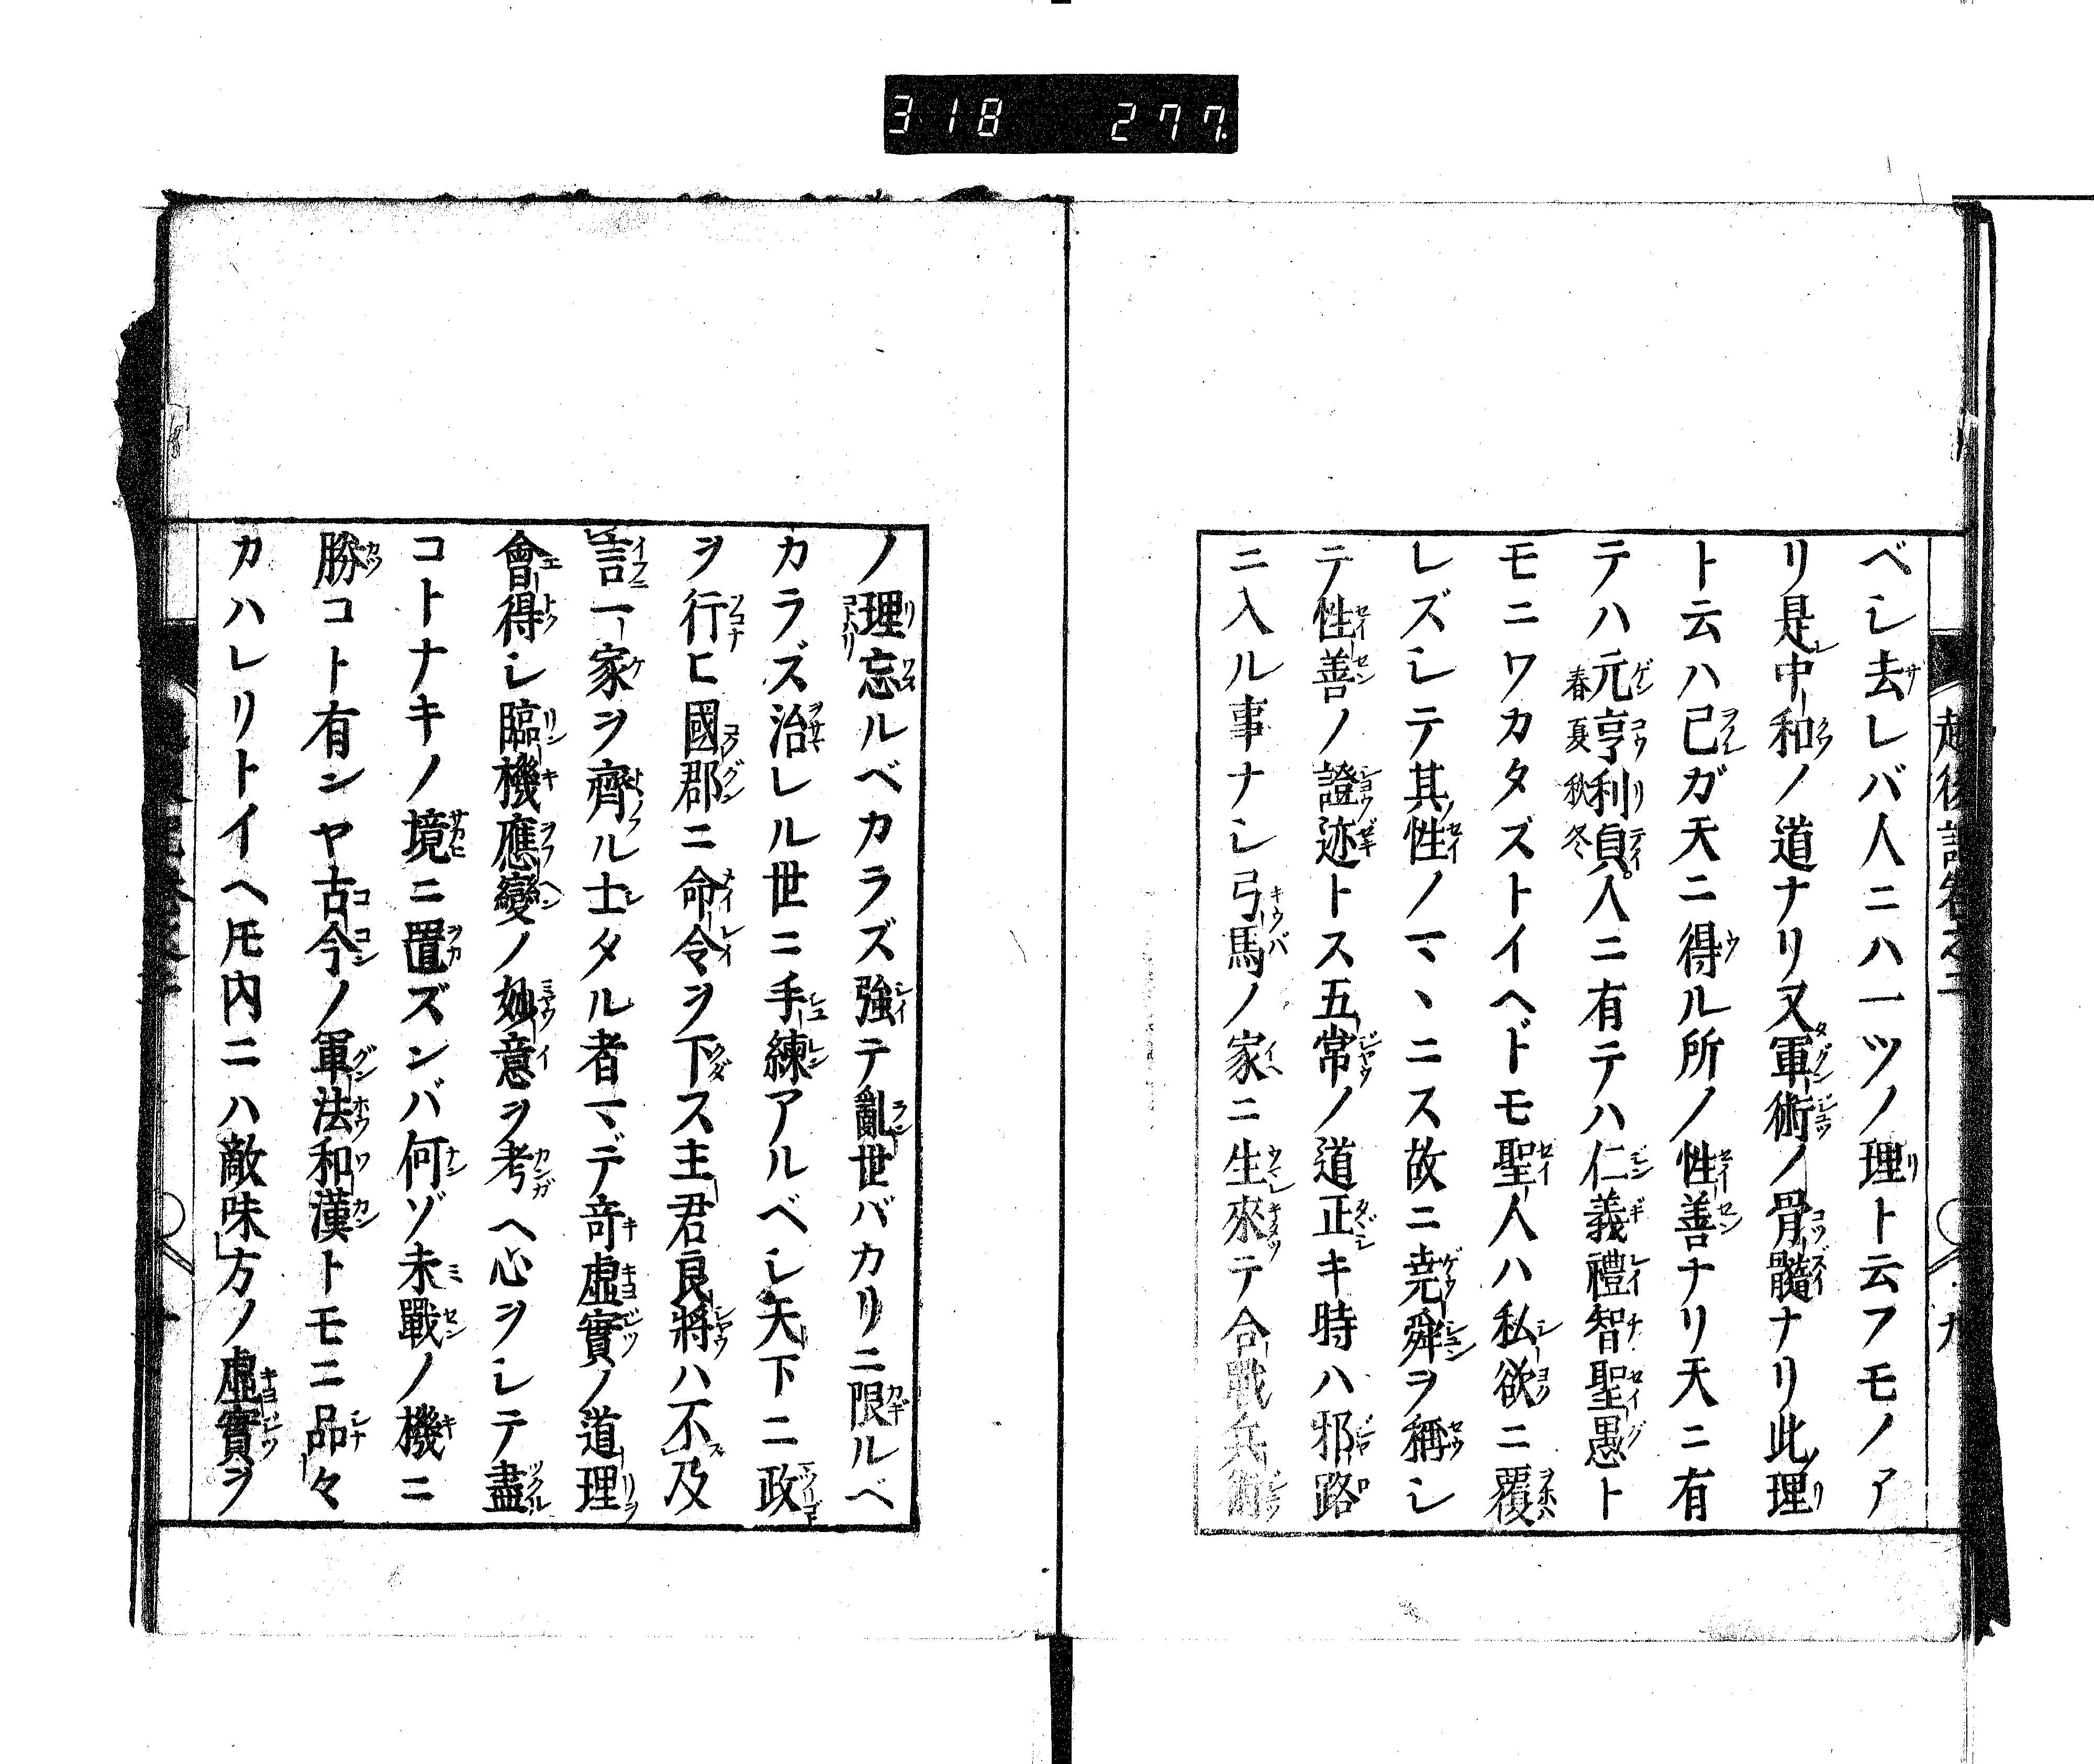 318 277.
ベシ去レバ人ニハ一ツノ理ト云フモノア
リ是中和ノ道ナリ又軍術ノ骨髓ナリ此理
ト云ハ己ガ天ニ得ル所ノ性善ナリ天ニ有
テハ元亨利貞人ニ有テハ仁義禮智聖愚ト
春夏秋冬
モニワカタズトイヘドモ聖人ハ私欲ニ覆
レズシテ其性ノマヽニス故ニ尭舜ヲ稱シ
テ性善ノ證迹トス五常ノ道正キ時ハ邪路
ニ入ル事ナシ弓馬ノ家ニ生來テ合戰兵術
ノ理忘ルベカラズ強テ亂世バカリニ限ルベ
カラズ治レル世ニ手練アルベシ天下ニ政
ヲ行ヒ國郡ニ命令ヲ下ス主君良將ハ不及
言一家ヲ齊ル士タル者マデ竒虛實ノ道理
會得シ臨機應變ノ妙意ヲ考ヘ心ヲシテ盡
コトナキノ境ニ置ズンバ何ゾ未戰ノ機ニ
勝コト有ンヤ古今ノ軍法和漢トモニ品々
カハレリトイヘ𪜈内ニハ敵味方ノ虛實ヲ